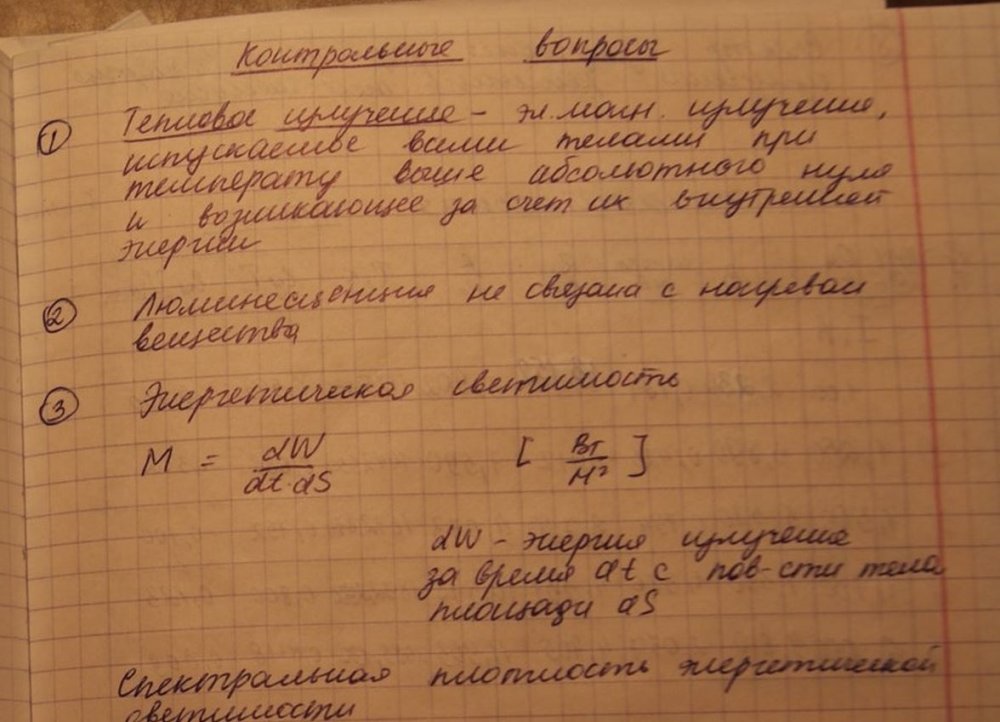 Контрольные вопросы
① Тепловое излучение – эл.магн. излучение,
испускаемое всеми телами при
температу выше абсолютного нуля
и возникающее за счет их внутренней
энергии
② Люминесценция не связана с нагревом
вещества
③ Энергетическая светимость
M = dW / dt·dS [ Вт / м² ]
dW – энергия излучения
за время dt с пов-сти тела
площади dS
Спектральная плотность энергетической
светимости